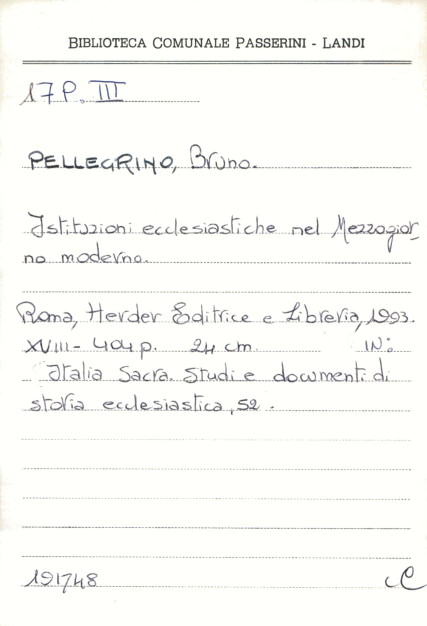 BIBLIOTECA COMUNALE PASSERINI - LANDI
17 P. III
PELLEGRINO, Bruno.
Istituzioni ecclesiastiche nel Mezzogior_
no moderno.
Roma, Herder Editrice e Libreria, 1993.
XVIII - 404 p. 24 cm. IN:
Italia Sacra. Studi e documenti di
storia ecclesiastica, 52.
191748 C